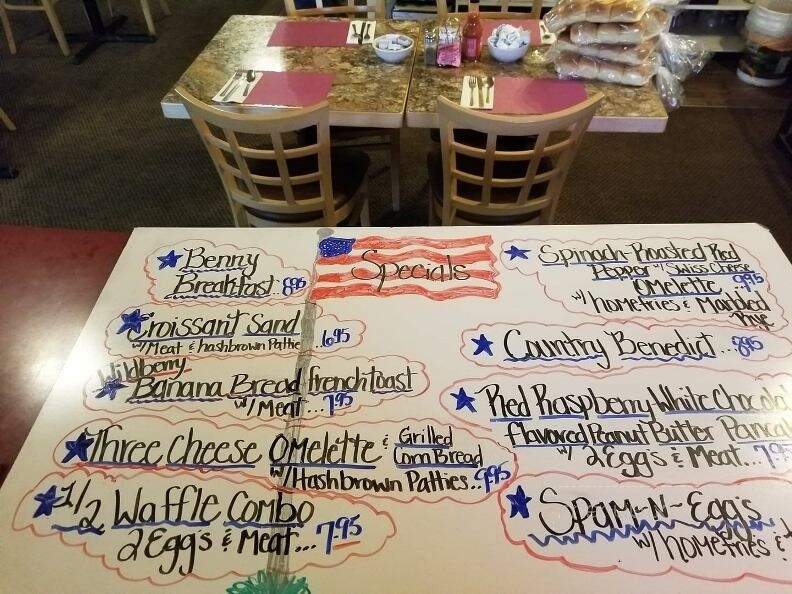 Specials
Benny
Breakfast... 8.95
Croissant Sand
w/Meat & hashbrown Patties... 6.95
Wildberry
Banana Bread frenchtoast
w/Meat... 7.95
Three Cheese Omelette & Grilled
Corn Bread
w/Hashbrown Patties... 9.95
1/2 Waffle Combo
2 Eggs & Meat... 7.95
Spinach-Roasted Red
Pepper w/ Swiss Cheese
Omelette 9.95
w/homefries & Marbled
Rye
Country Benedict... 8.95
Red Raspberry White Chocola
flavored Peanut Butter Pancak
w/ 2 Eggs & Meat... 7.9
Spam-N-Eggs
w/homefries &